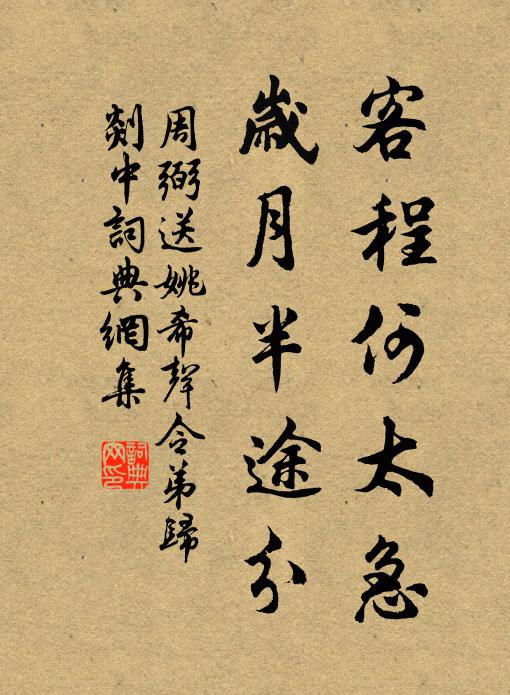 客程何太急
歲月半途分
周弼送姚希聲令弟歸
剡中詞典網集
詞典网印